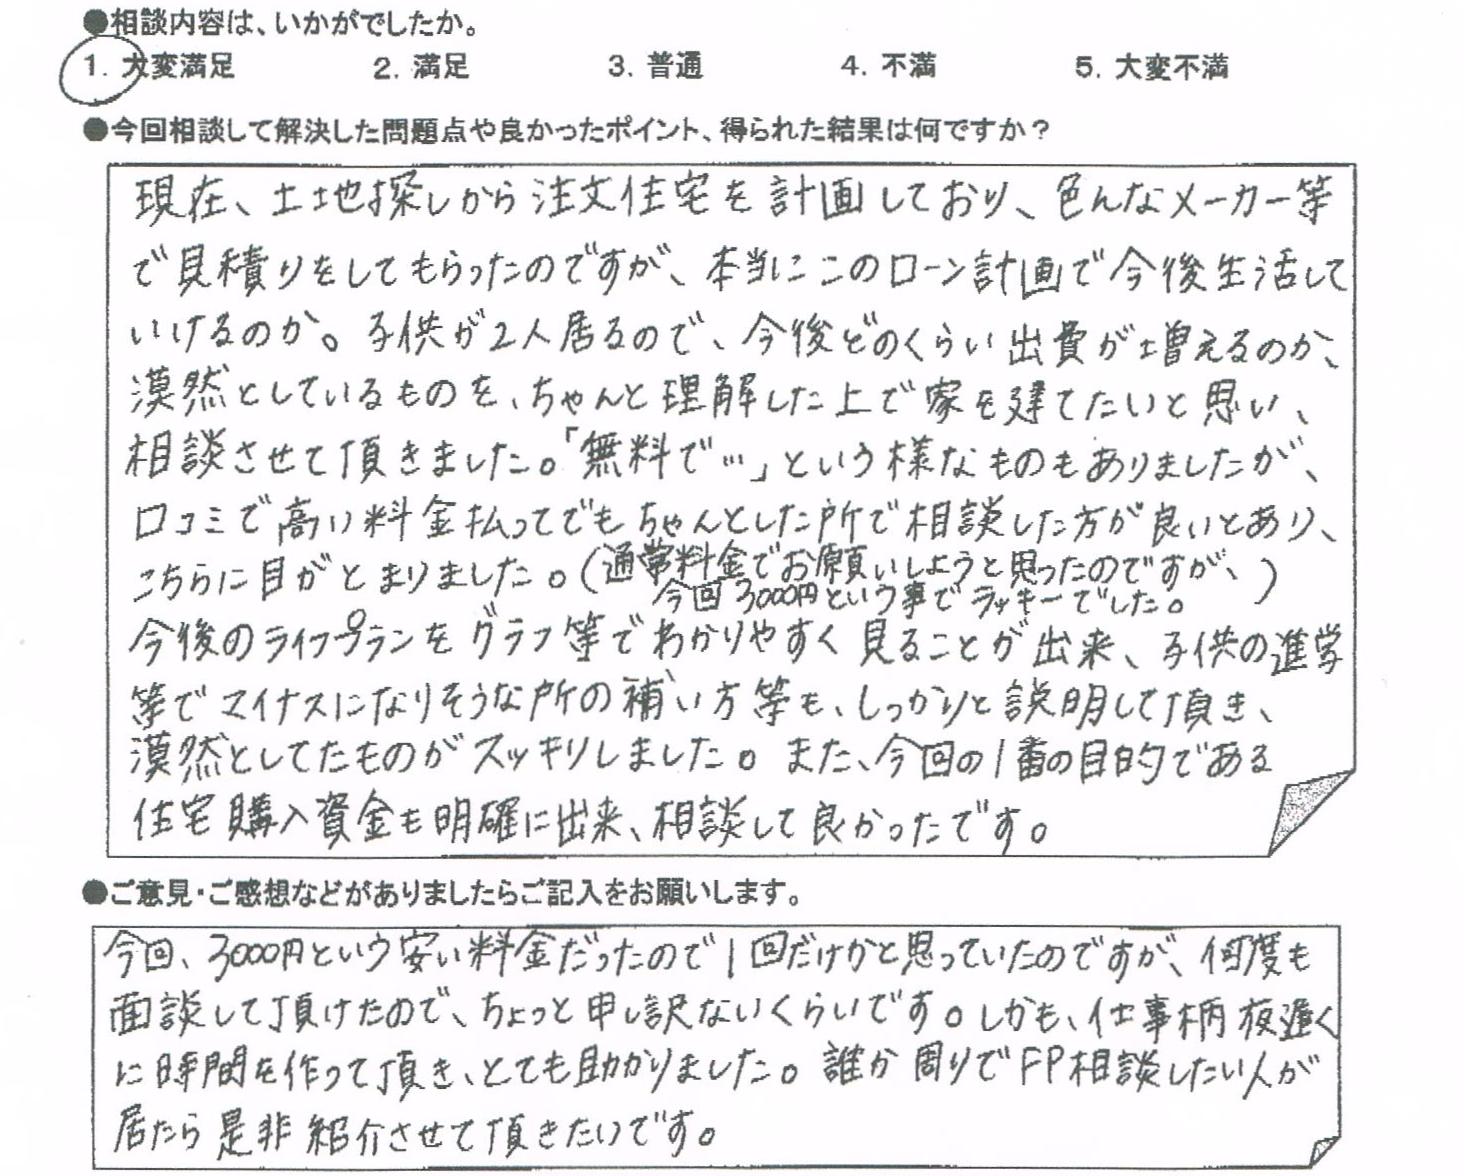 ●相談内容は、いかがでしたか。
1. 大変満足 2. 満足 3. 普通 4. 不満 5. 大変不満
●今回相談して解決した問題点や良かったポイント、得られた結果は何ですか？
現在、土地探しから注文住宅を計画しており、色んなメーカー等
で見積りをしてもらったのですが、本当にこのローン計画で今後生活して
いけるのか。子供が2人居るので、今後どのくらい出費が増えるのか、
漠然としているものを、ちゃんと理解した上で家を建てたいと思い、
相談させて頂きました。「無料で…」という様なものもありましたが、
口コミで高い料金払ってでもちゃんとした所で相談した方が良いとあり、
こちらに目がとまりました。(通常料金でお願いしようと思ったのですが、)
今回3000円という事でラッキーでした。
今後のライフプランをグラフ等でわかりやすく見ることが出来、子供の進学
等でマイナスになりそうな所の補い方等も、しっかりと説明して頂き、
漠然としてたものがスッキリしました。また、今回の1番の目的である
住宅購入資金も明確に出来、相談して良かったです。
●ご意見・ご感想などがありましたらご記入をお願いします。
今回、3000円という安い料金だったので1回だけかと思っていたのですが、何度も
面談して頂けたので、ちょっと申し訳ないくらいです。しかも、仕事柄夜遅く
に時間を作って頂き、とても助かりました。誰か周りでFP相談したい人が
居たら是非紹介させて頂きたいです。